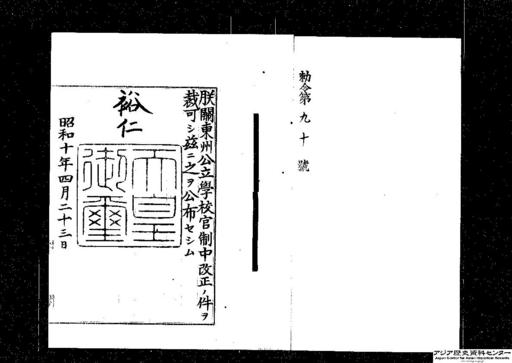 勅令第九十號
朕關東州公立學校官制中改正ノ件ヲ
裁可シ茲ニ之ヲ公布セシム
裕仁
天皇御璽
昭和十年四月二十三日
アジア歴史資料センター
Japan Center for Asian Historical Records